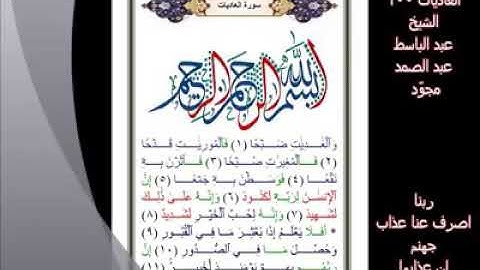 سورة العاديات
بسم الله الرحمن الرحيم
وَالْعَٰدِيَٰتِ ضَبْحًا (١) فَالْمُورِيَٰتِ قَدْحًا
(٢) فَالْمُغِيرَٰتِ صُبْحًا (٣) فَأَثَرْنَ بِهِ
نَقْعًا (٤) فَوَسَطْنَ بِهِ جَمْعًا (٥) إِنَّ
الْإِنسَٰنَ لِرَبِّهِ لَكَنُودٌ (٦) وَإِنَّهُ عَلَىٰ ذَٰلِكَ
لَشَهِيدٌ (٧) وَإِنَّهُ لِحُبِّ الْخَيْرِ لَشَدِيدٌ (٨)
* أَفَلَا يَعْلَمُ إِذَا بُعْثِرَ مَا فِي الْقُبُورِ (٩)
وَحُصِّلَ مَا فِي الصُّدُورِ (١٠) إِنَّ
رَبَّهُم بِهِمْ يَوْمَئِذٍ لَّخَبِيرٌ (١١)
العاديات ١٠٠
الشيخ
عبد الباسط
عبد الصمد
مجوّد
ربنا
اصرف عنا عذاب
جهنم
إن عذابها